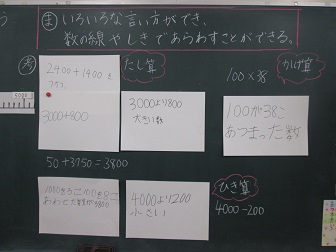 ま いろいろな言い方ができ、
数の線やしきであらわすことができる。
考
2400+1400を
たし算
かけ算
100×38
3000+800
3000より800
大きい数
100が38こ
あつまった数
50+3750=3800
ひき算
4000より200
小さい
4000-200